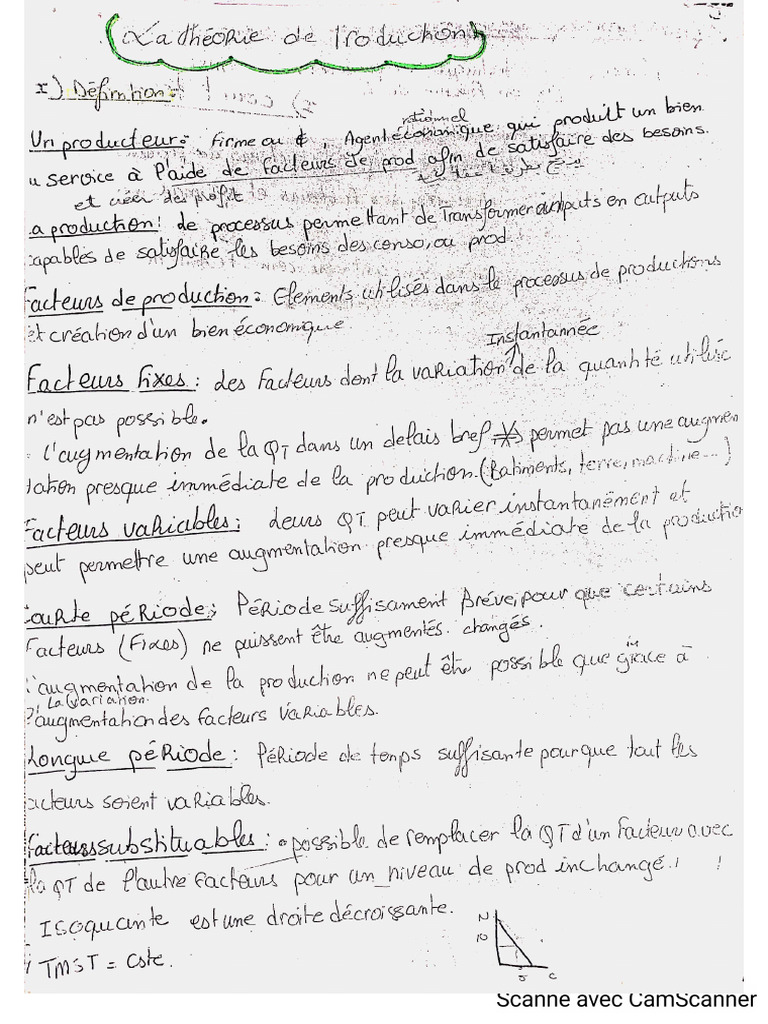 La théorie de Production
I) Définition:
Un producteur: firme ou , Agent économique rationnel qui produit un bien
u service à l'aide de facteurs de prod afin de satisfaire des besoins.
et créer des profit
a production: de processus permettant de Transformer outputs en outputs
capables de satisfaire les besoins des conso, ou prod
Facteurs de production: Elements utilisés dans le processus de productions
et création d'un bien économique
Instantannée
Facteurs fixes: des facteurs dont la variation de la quantité utilisé
n'est pas possible.
l'augmentation de la QT dans un delais bref permet pas une augmen
tation presque immédiate de la production. (Batiments, terre, machine...)
Facteurs variables: Leurs QT peut varier instantanément et
peut permettre une augmentation presque immédiate de la productio
Courte période: Période suffisament brève, pour que certains
facteurs (Fixes) ne puissent être augmentés. changés.
l'augmentation de la production ne peut être possible que grâce à
La variation.
l'augmentation des facteurs variables.
Longue période: Période de temps suffisante pour que tout les
acteurs soient variables.
facteurs substituables: possible de remplacer la QT d'un facteur avec
la QT de l'autre facteurs pour un niveau de prod inchangé. !
ISOquante est une droite décroissante.
TMST = cste.
N
10
5 C
Scanné avec CamScanner